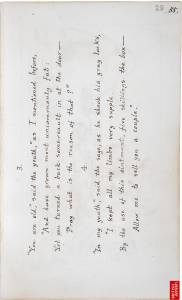 28
35.
3.
"You are old," said the youth, "as I mentioned before,
"And have grown most uncommonly fat:
Yet you turned a back somersault in at the door—
Pray what is the reason of that?"
4.
"In my youth," said the sage, as he shook his gray locks,
"I kept all my limbs very supple
By the use of this ointment, five shillings the box—
Allow me to sell you a couple."